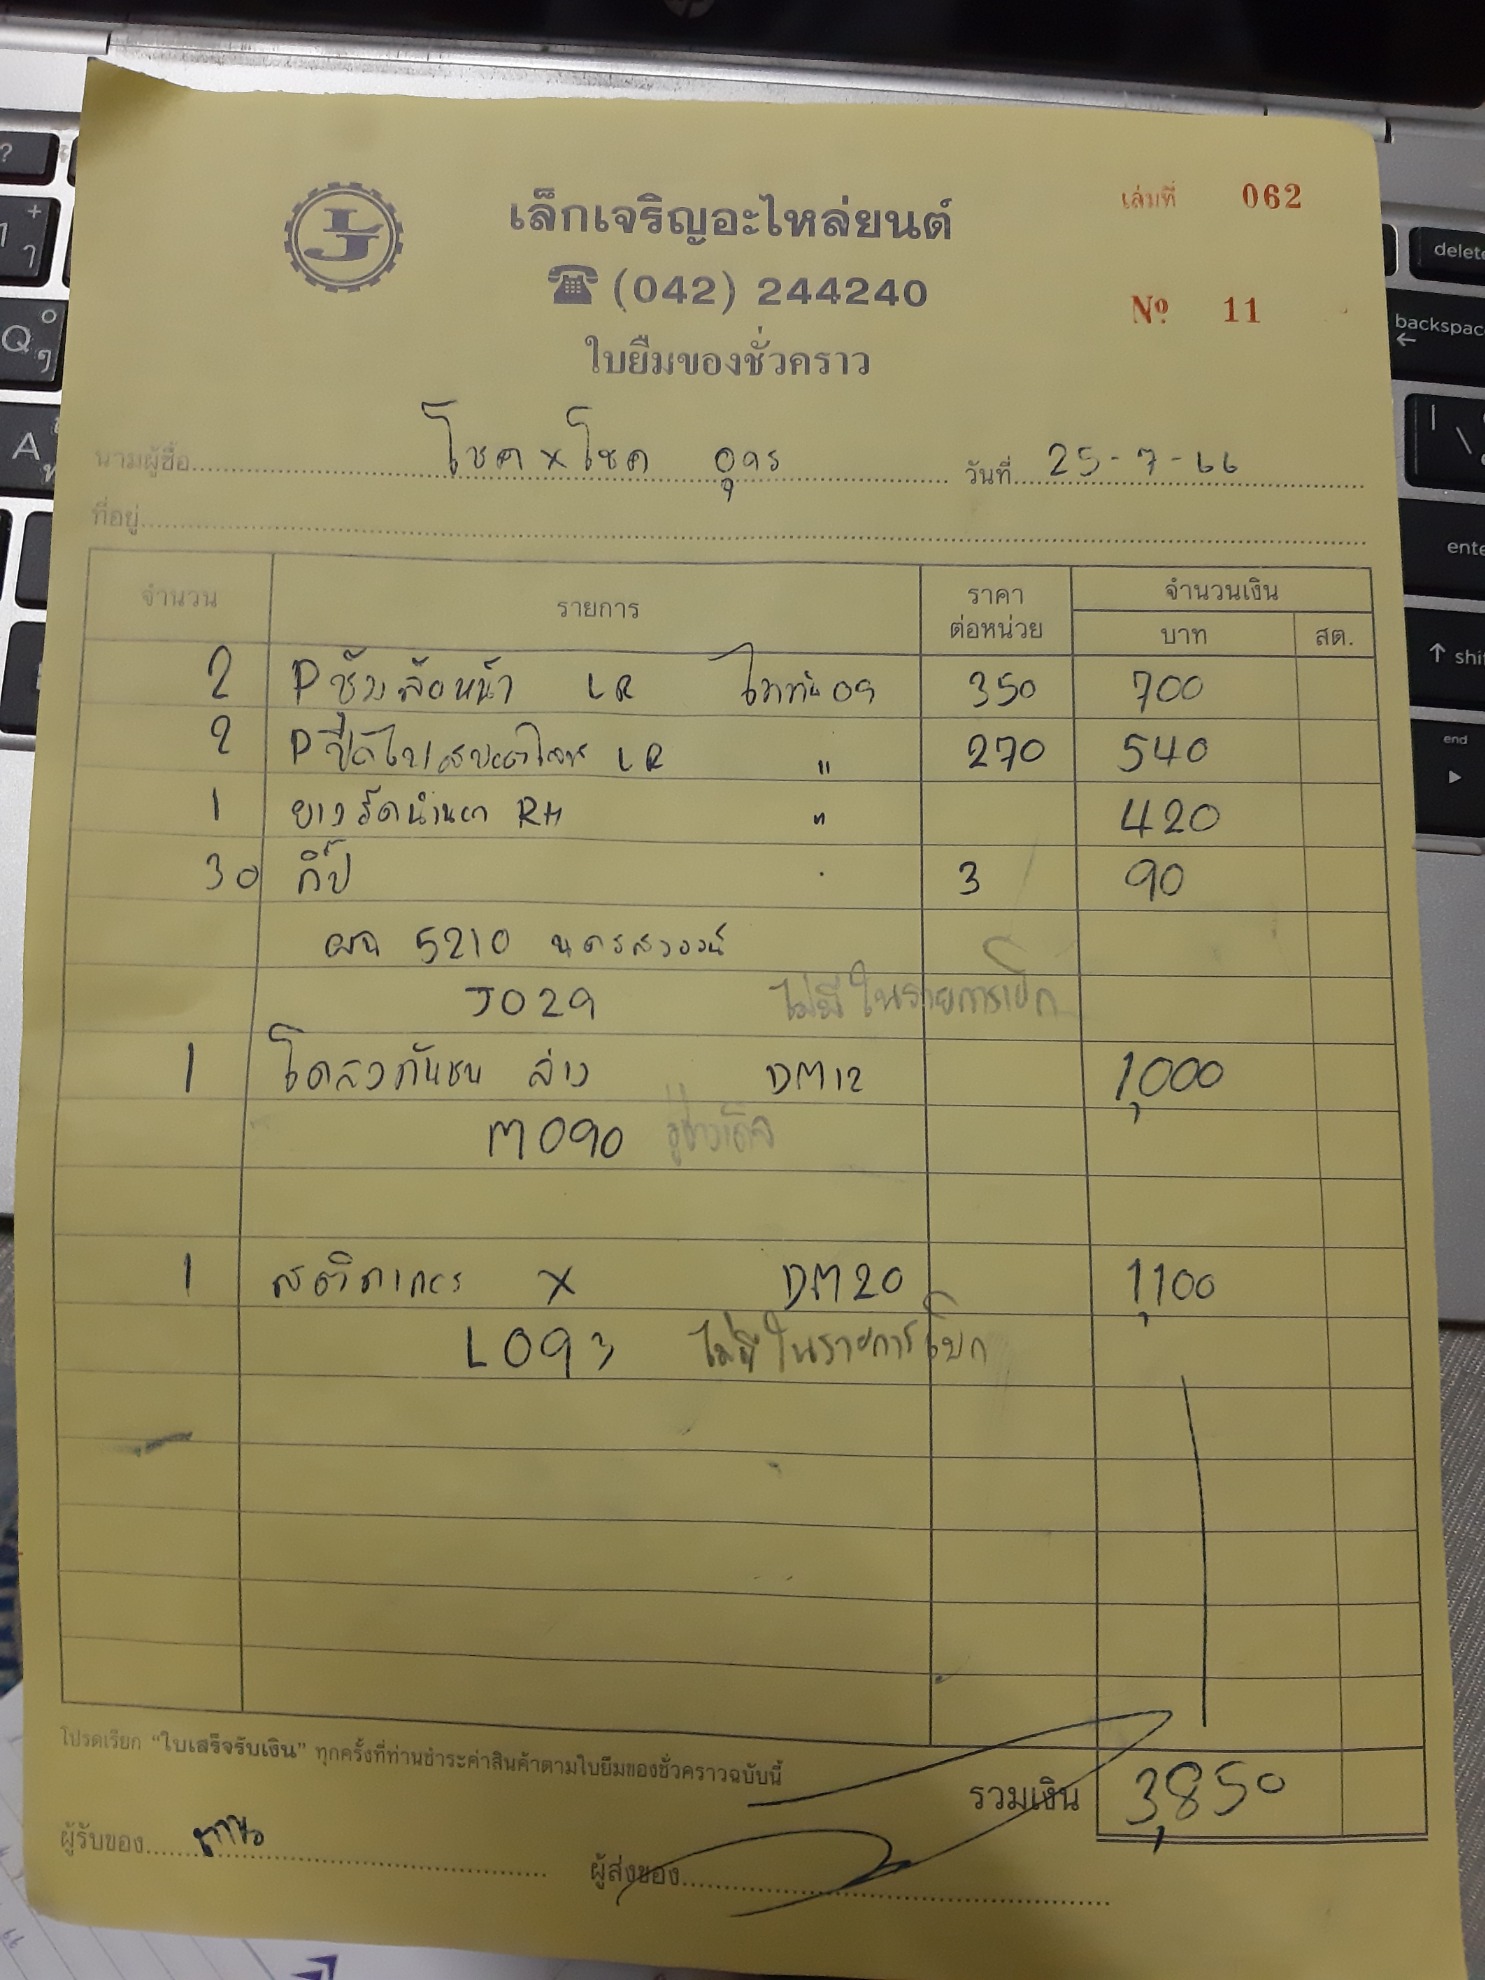 เล่มที่ 062
LJ
เล็กเจริญอะไหล่ยนต์
☎ (042) 244240
Nº 11
ใบยืมของชั่วคราว
นามผู้ซื้อ โชค x โชค อุดร วันที่ 25-7-66
ที่อยู่
จำนวน รายการ ราคาต่อหน่วย จำนวนเงิน
บาท สต.
2 Pซุ้มล้อหน้า LR ไททัน09 350 700
2 P LR " 270 540
1 ยางรีดน้ำนอก RH " 420
30 กิ๊ป 3 90
ผฉ 5210 นครสวรรค์
J029 ไม่มีในรายการเบิก
1 โครงกันชน ล่าง DM12 1,000
M090
1 สติกเกอร์ X DM20 1,100
L093 ไม่มีในรายการเบิก
โปรดเรียก "ใบเสร็จรับเงิน" ทุกครั้งที่ท่านชำระค่าสินค้าตามใบยืมของชั่วคราวฉบับนี้
รวมเงิน 3,850
ผู้รับของ
ผู้ส่งของ
?
delete
backspace
enter
shift
end
Q
A